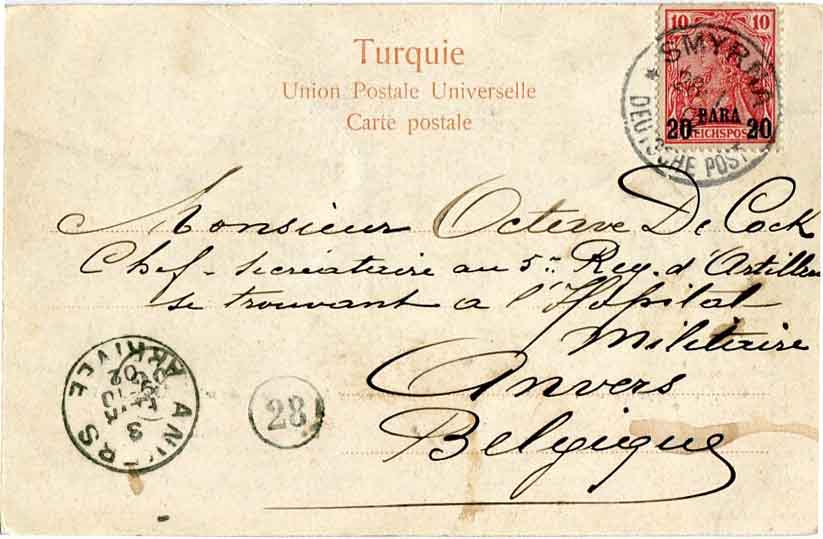 Turquie
Union Postale Universelle
Carte postale
10 10
20 PARA 20
REICHSPOST
SMYRNA
DEUTSCHE POST
Monsieur Octave De Cock
Chef-secrétaire au 5me Reg. d'Artillerie
se trouvant a l'Hopital
Militaire
Anvers
Belgique
ANVERS
ARRIVÉE
3
02
28